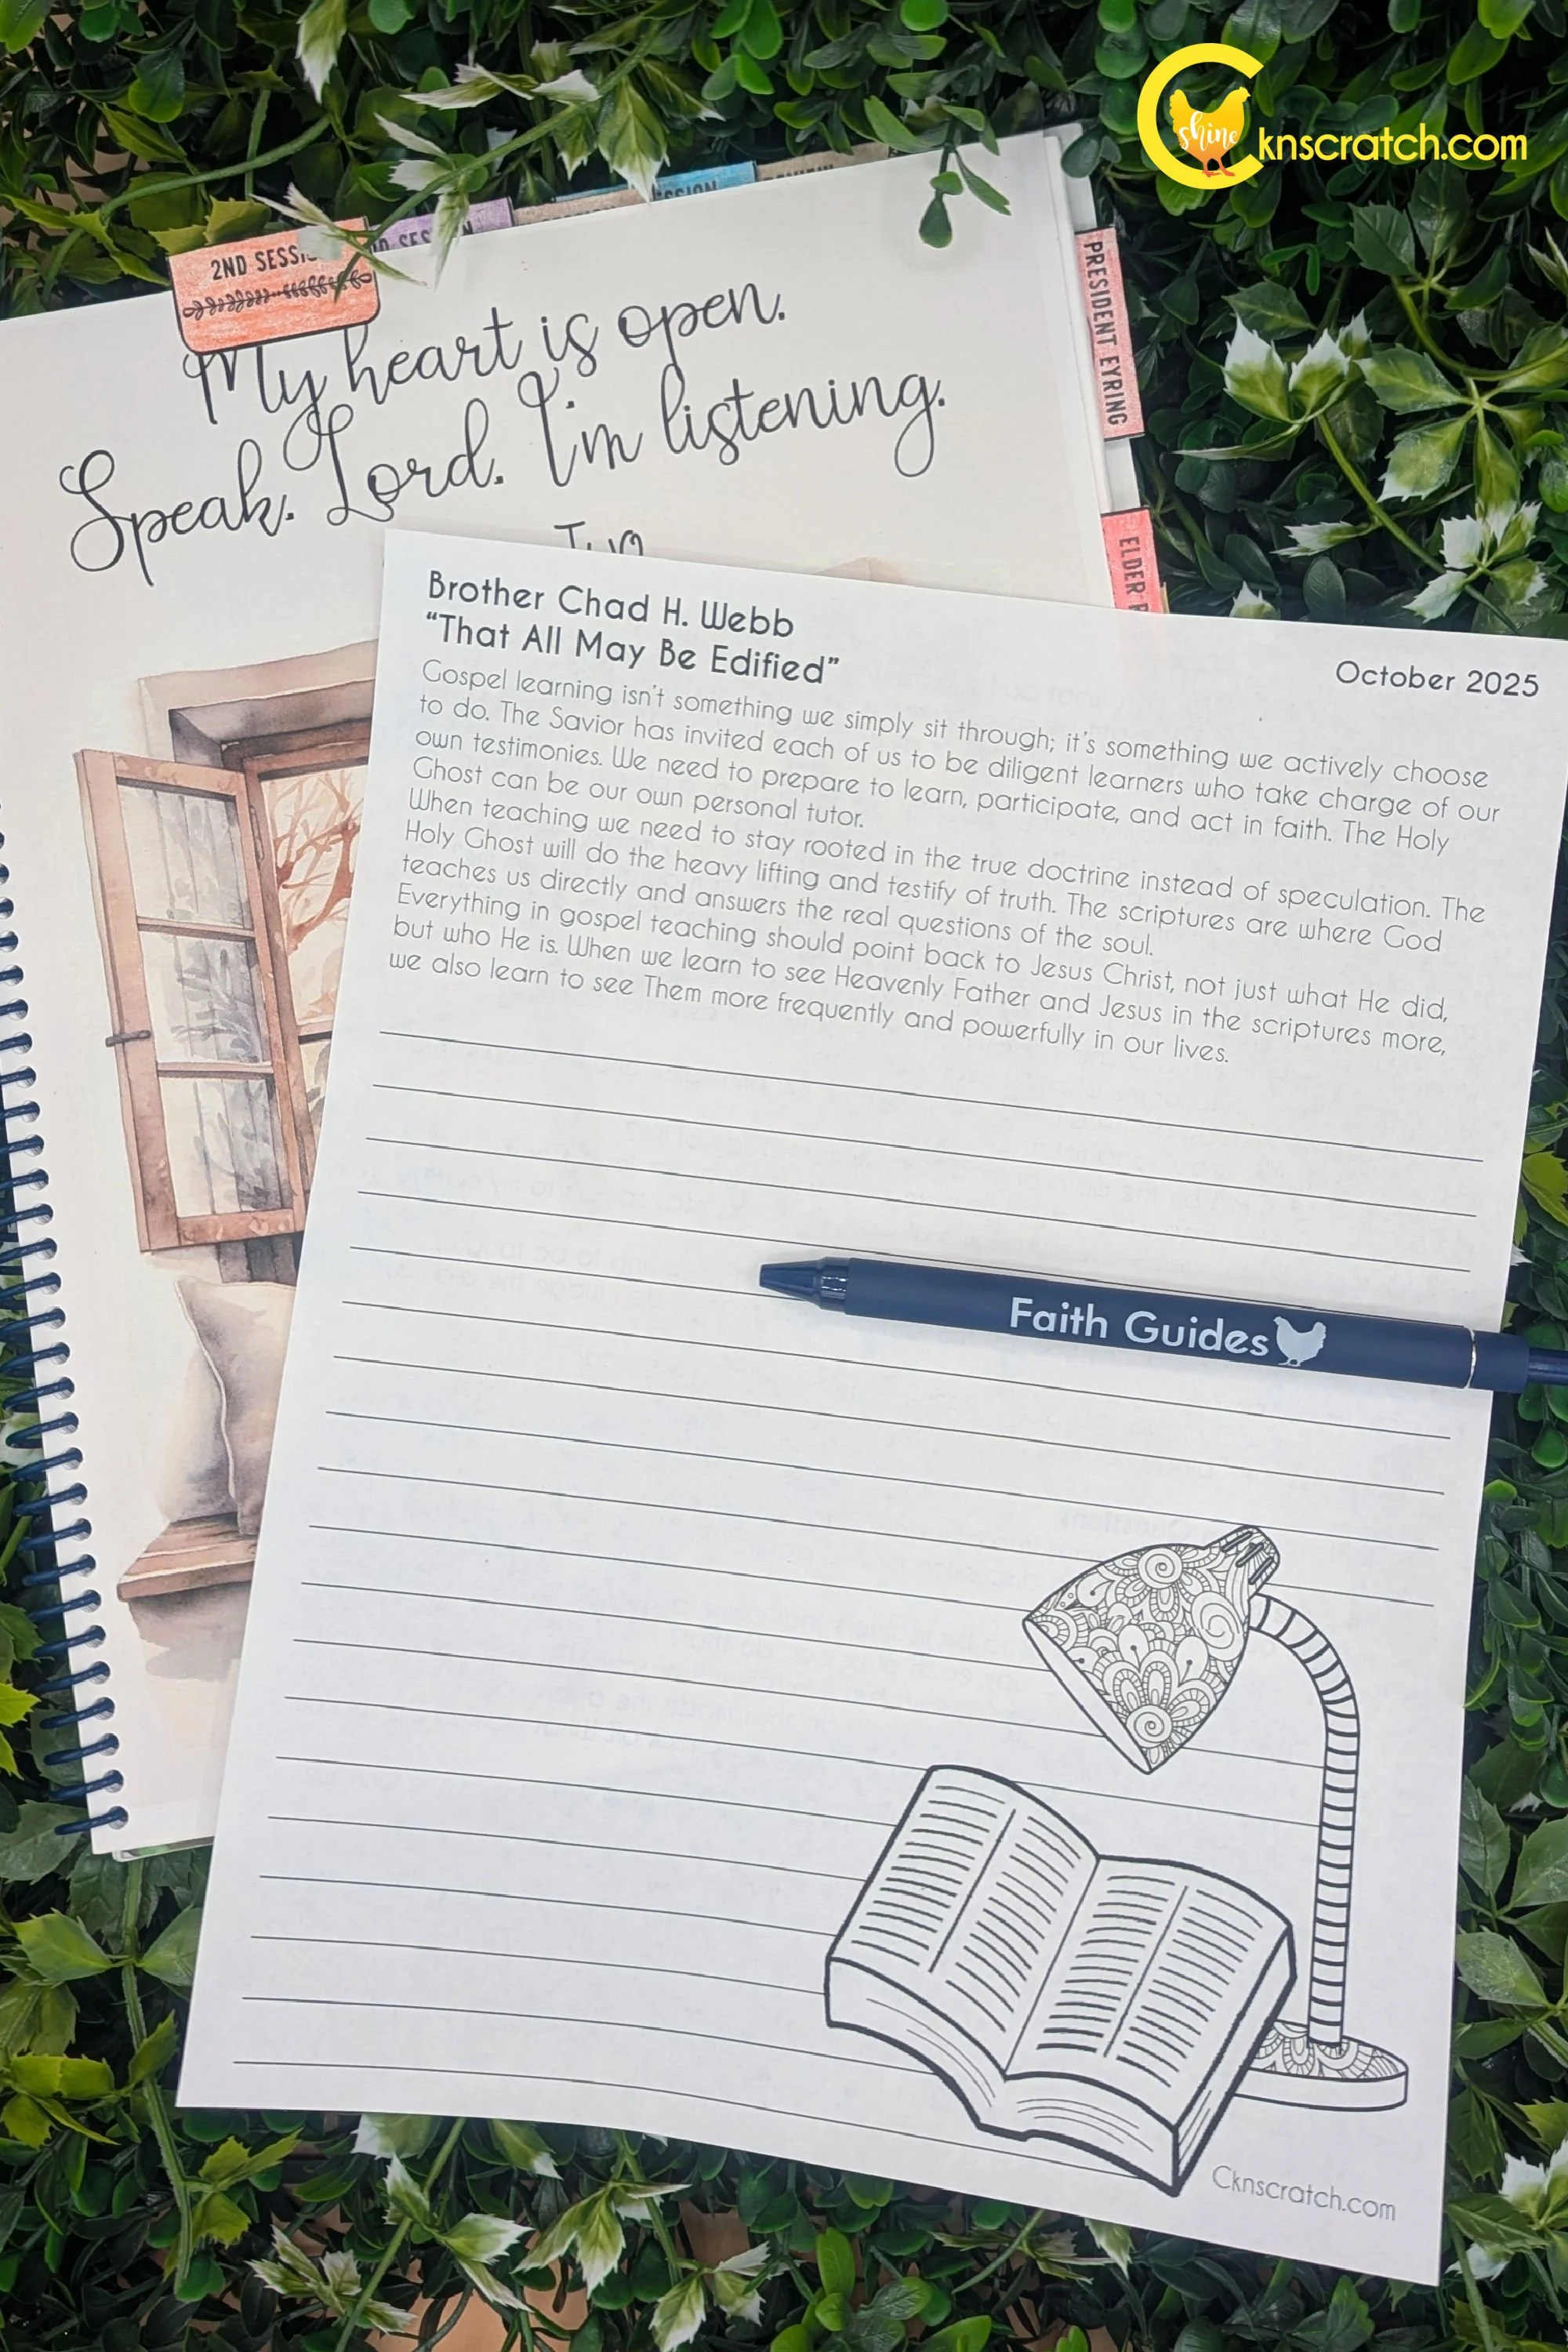 shine
cknscratch.com
SESSION
2ND SESSI
PRESIDENT EYRING
ELDER
My heart is open.
Speak. Lord. I'm listening.
Brother Chad H. Webb
"That All May Be Edified"
October 2025
Gospel learning isn't something we simply sit through; it's something we actively choose
to do. The Savior has invited each of us to be diligent learners who take charge of our
own testimonies. We need to prepare to learn, participate, and act in faith. The Holy
Ghost can be our own personal tutor.
When teaching we need to stay rooted in the true doctrine instead of speculation. The
Holy Ghost will do the heavy lifting and testify of truth. The scriptures are where God
teaches us directly and answers the real questions of the soul.
Everything in gospel teaching should point back to Jesus Christ, not just what He did,
but who He is. When we learn to see Heavenly Father and Jesus in the scriptures more,
we also learn to see Them more frequently and powerfully in our lives.
Faith Guides
Cknscratch.com